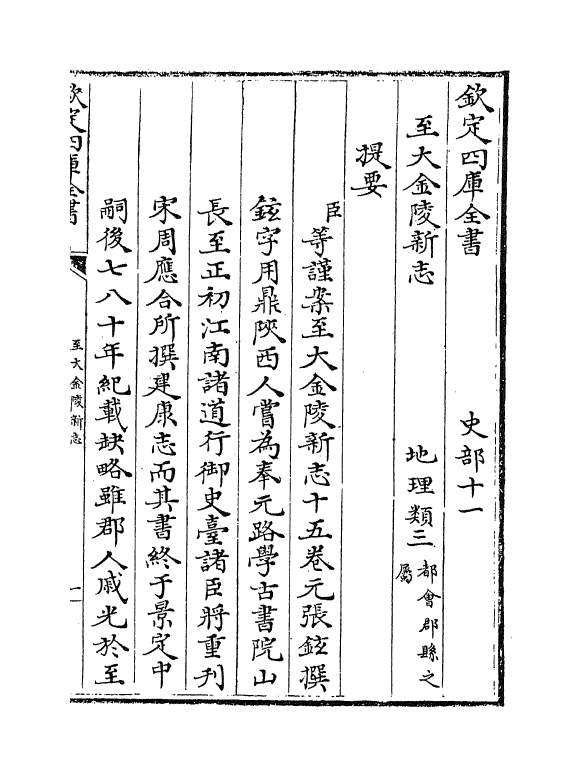 欽定四庫全書　史部十一
至大金陵新志　地理類三都會郡縣之屬
提要
臣等謹案至大金陵新志十五卷元張鉉撰
鉉字用鼎陜西人嘗為奉元路學古書院山
長至正初江南諸道行御史臺諸臣將重刋
宋周應合所撰建康志而其書終于景定中
嗣後七八十年紀載缺略雖郡人戚光於至
欽定四庫全書
至大金陵新志
一